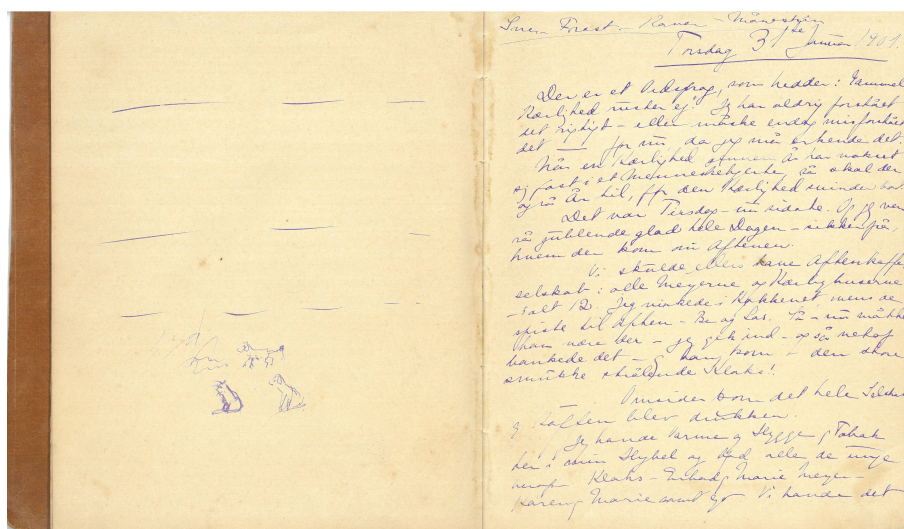 Sne, Frost – – Måneskin
Torsdag 31te Januar 1901.
Der er et Ordsprog, som hedder: Gammel
Kærlighed ruster ej. Jeg har aldrig forstået
det rigtigt – eller måske endog misforstået
det – før nu da jeg må erkende det.
Når en Kærlighed År har vokset
sig fast i et Menneskehjerte, så skal der
også År til, før den Kærlighed svinder bort.
Det var Tirsdag – nu sidste. Og jeg var
så jublende glad hele Dagen – sikker på,
hvem der kom om Aftenen.
Vi skulde ellers have Aftenkaffe
selskab: alle Meyerne og Kærbyhuserne
– ialt 12. Jeg virkede i Køkkenet mens de
spiste til Aften – Be og Las. Så – nu måtte
han være der – jeg gik ind – og så netop
bankede det – og han kom – den store
smukke strålende Klaks!
Omsider kom det hele Selskab
og Kaffen blev drukken.
Jeg havde Varme og Hygge og Tobak
her i min Hybel og bød alle de unge
herop Klaks – Erhard, Marie Meyer –
Karen, Marie samt jeg Vi havde det